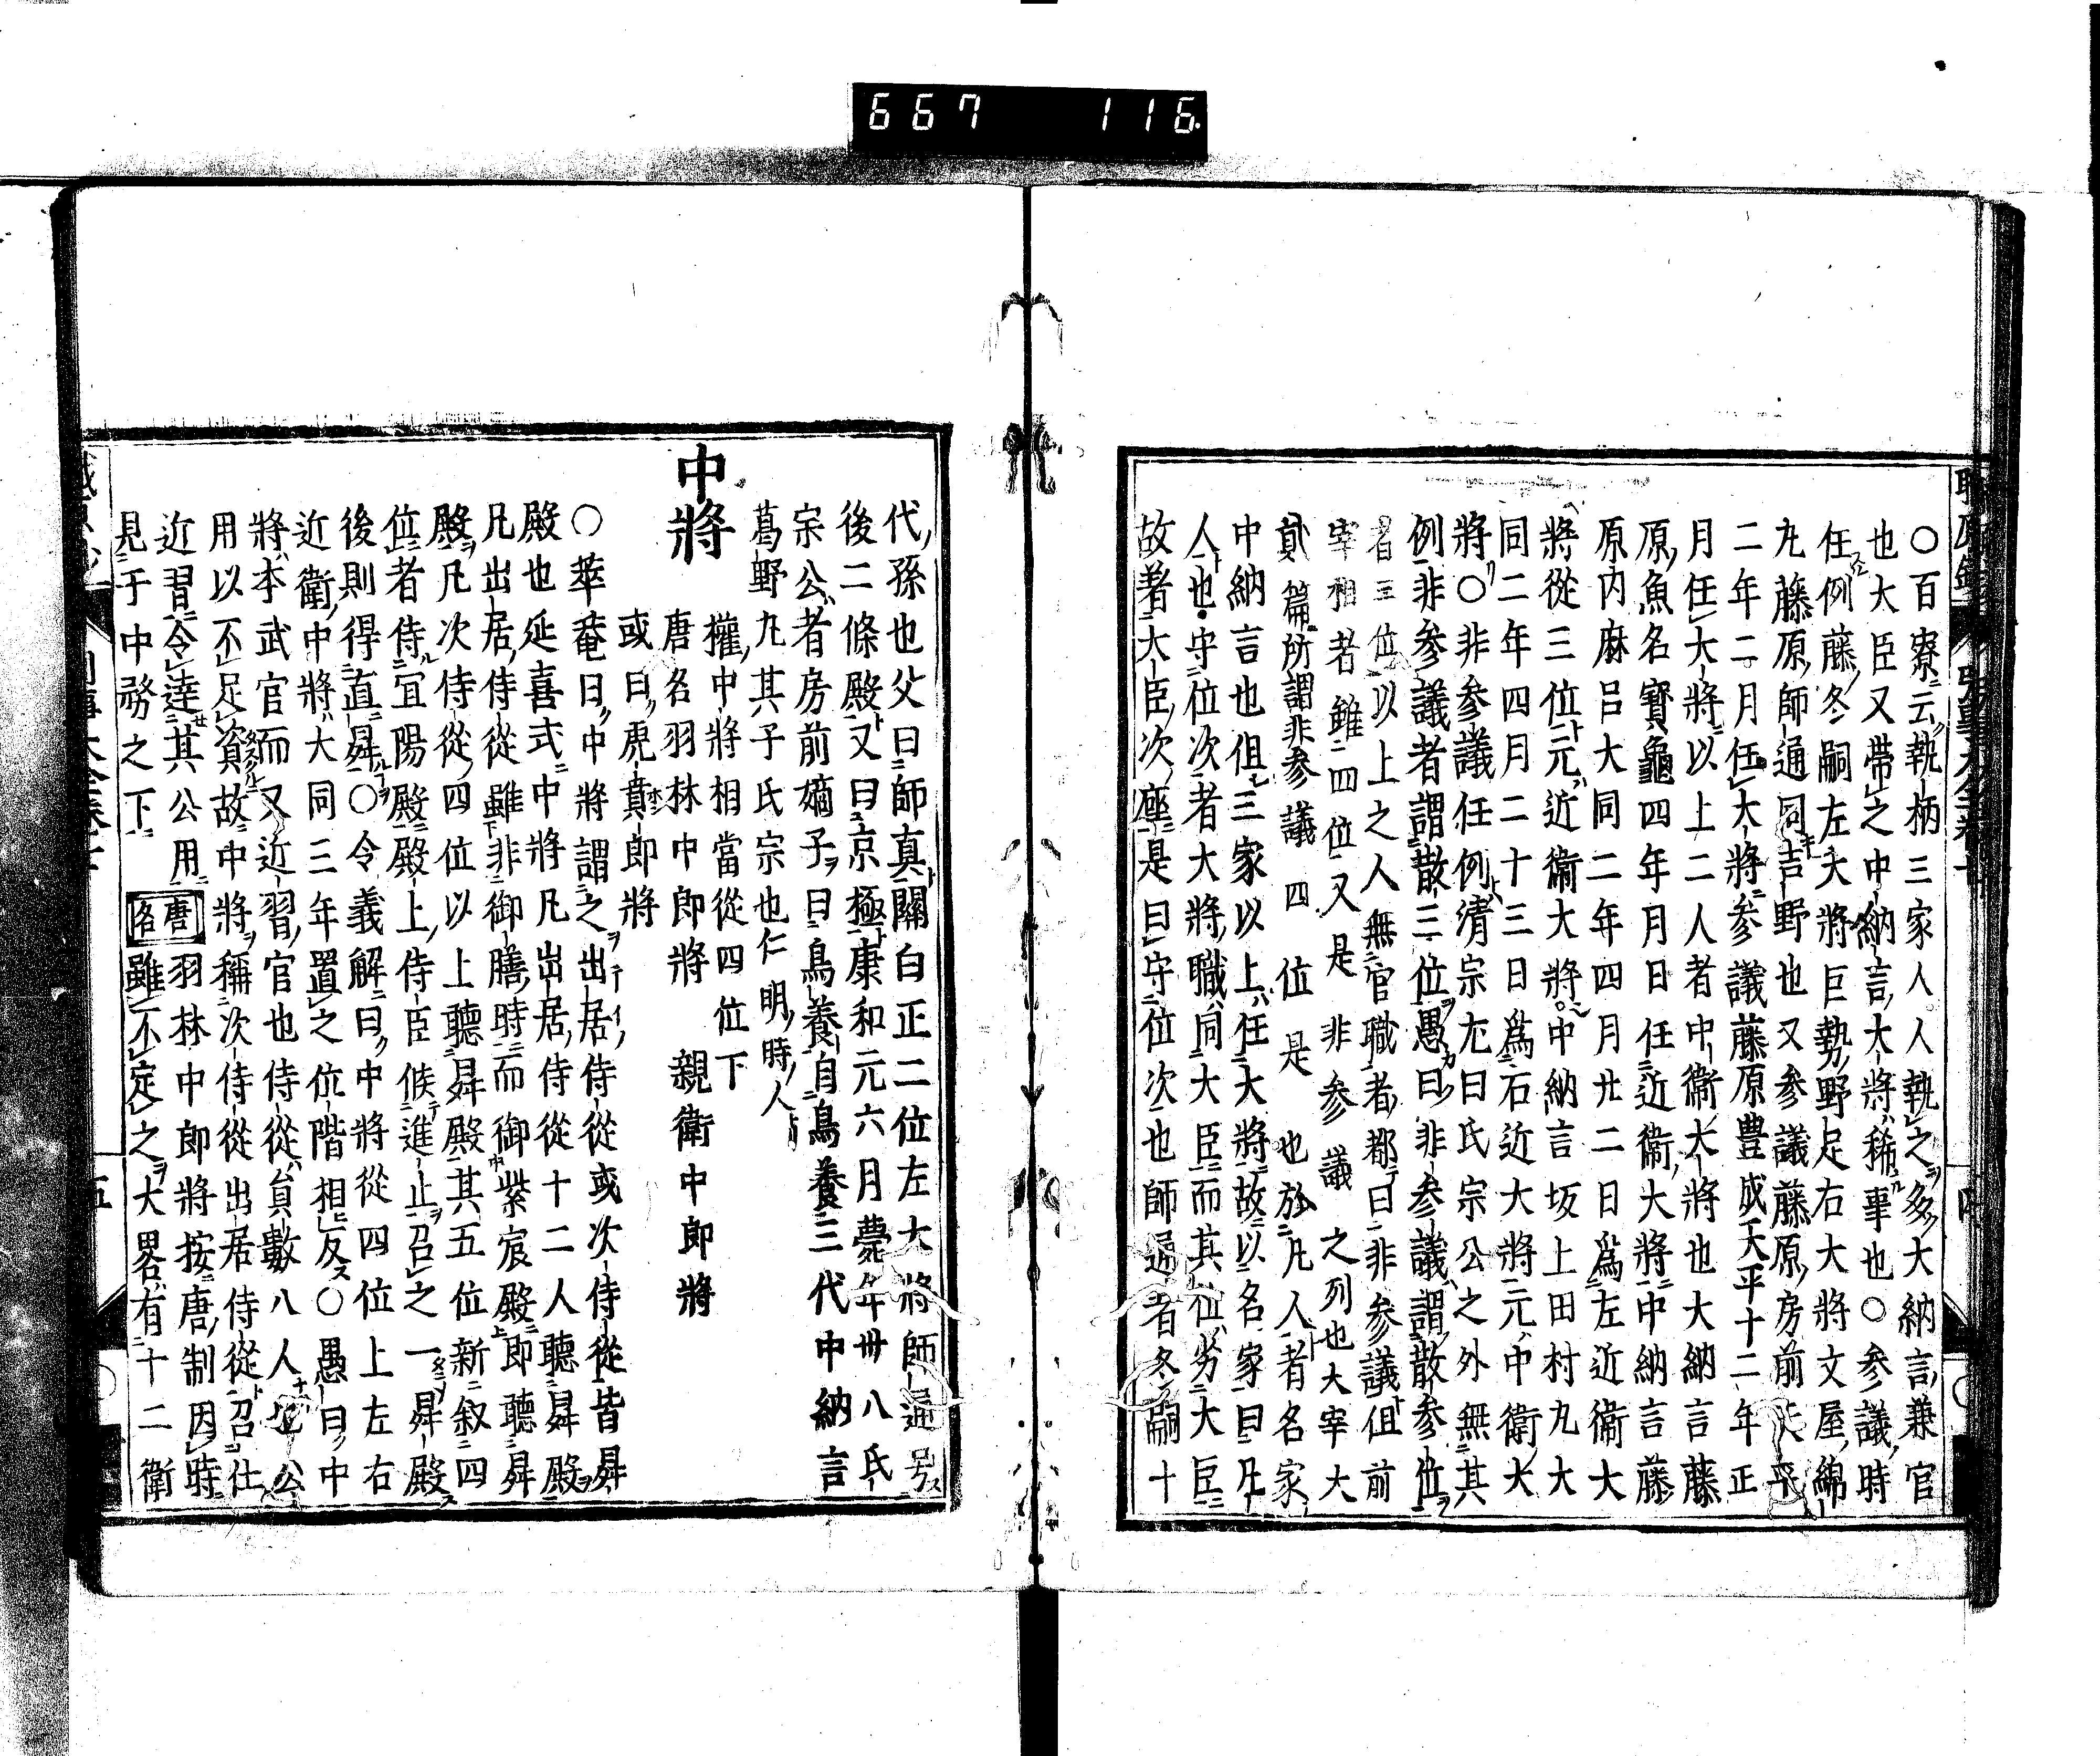 667 116
○百寮云執柄三家人人執之多大納言兼官
也大臣又帶之中納言大將稀事也○參議時
任例藤冬嗣左大將巨勢野足右大將文屋綿
丸藤原師通同吉野也又參議藤原房前天平
二年二月任大將參議藤原豊成天平十二年正
月任大將以上二人者中衞大將也大納言藤
原魚名寳龜四年月日任近衞大將中納言藤
原内麻呂大同二年四月廿二日爲左近衞大
將從三位元近衞大將中納言坂上田村丸大
同二年四月二十三日爲右近大將元中衞大
將○非參議任例清宗尤曰氏宗公之外無其
例非參議者謂散三位愚曰非參議謂散參位
者三位以上之人無官職者都曰非參議但前
宰相者雖四位又是非參議之列也大宰大
貳篇所謂非參議四位是也於凡人者名家
中納言也但三家以上任大將故以名家曰凡
人也守位次者大將職同大臣而其位劣大臣
故者大臣次座是曰守位次也師通者冬嗣十
代孫也父曰師真關白正二位左大將師通号
後二條殿又曰京極康和元六月薨年卅八氏
宗公者房前嫡子曰鳥養自鳥養三代中納言
葛野丸其子氏宗也仁明時人
中將
權中將相當從四位下
唐名羽林中郎將 親衞中郎將
或曰虎賁郎將
○萃菴曰中將謂之出居侍從或次侍從皆昇
殿也延喜式中將凡出居侍從十二人聽昇殿
凡出居侍從雖非御膳時而御紫宸殿即聽昇
殿凡次侍從四位以上聽昇殿其五位新叙四
位者侍宜陽殿殿上侍臣候進止召之一昇殿
後則得直昇○令義解曰中將從四位上左右
近衞中將大同三年置之位階相反○愚曰中
將本武官而又近習官也侍從員數八人也公
用以不足資故中將稱次侍從出居侍從召仕
近習令達其公用唐名羽林中郎將按唐制因時
見于中務之下雖不定之大畧有十二衞
五